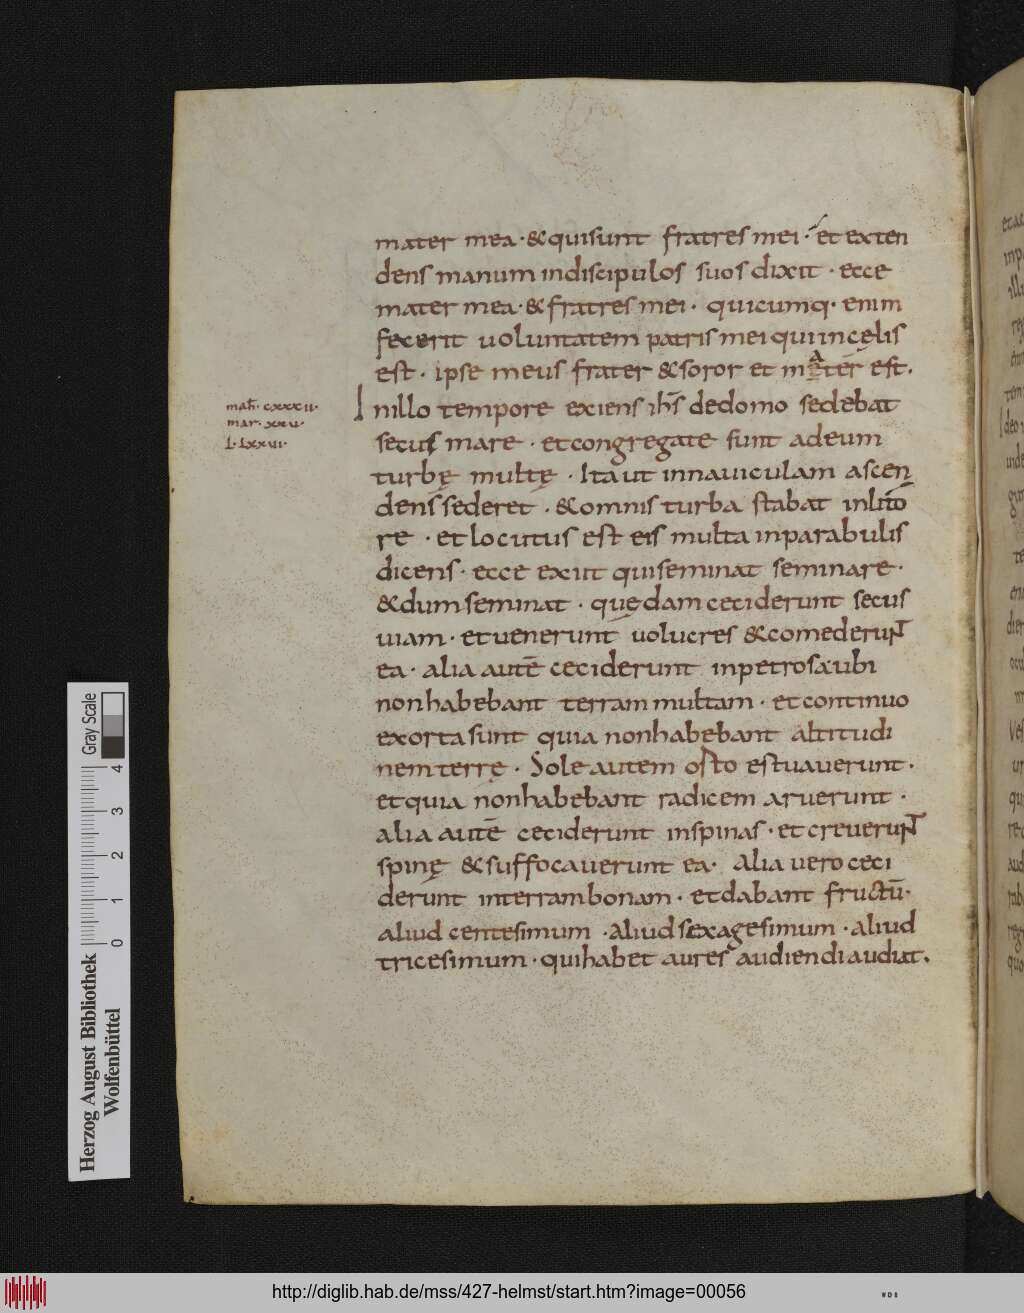 mater mea · & qui sunt fratres mei · et exten
dens manum in discipulos suos dixit · ecce
mater mea · & fratres mei · quicumq· enim
fecerit uoluntatem patris mei qui in cęlis
est · ipse meus frater & soror et mater est .
math̄· cxxxii·
mar· xxxv·
L· Lxxvi·
In illo tempore exiens ih̄s de domo sedebat
secus mare · et congregate sunt ad eum
turbę multę · Ita ut in nauiculam ascen
dens sederet · & omnis turba stabat in lito
re · et locutus est eis multa in parabulis
dicens · ecce exiit qui seminat seminare ·
& dum seminat · quędam ceciderunt secus
uiam · et uenerunt uolucres & comederunt
ea · alia autē ceciderunt in petrosa ubi
non habebant terram multam · et continuo
exorta sunt quia non habebant altitudi
nem terrę · Sole autem osto estuauerunt ·
et quia non habebant radicem aruerunt ·
alia autē ceciderunt in spinas · et creuerunt
spinę & suffocauerunt ea · Alia uero ceci
derunt in terram bonam · et dabant fructū ·
aliud centesimum · aliud sexagesimum · aliud
tricesimum · qui habet aures audiendi audiat .
Gray Scale
0 1 2 3 4
Herzog August Bibliothek
Wolfenbüttel
http://diglib.hab.de/mss/427-helmst/start.htm?image=00056